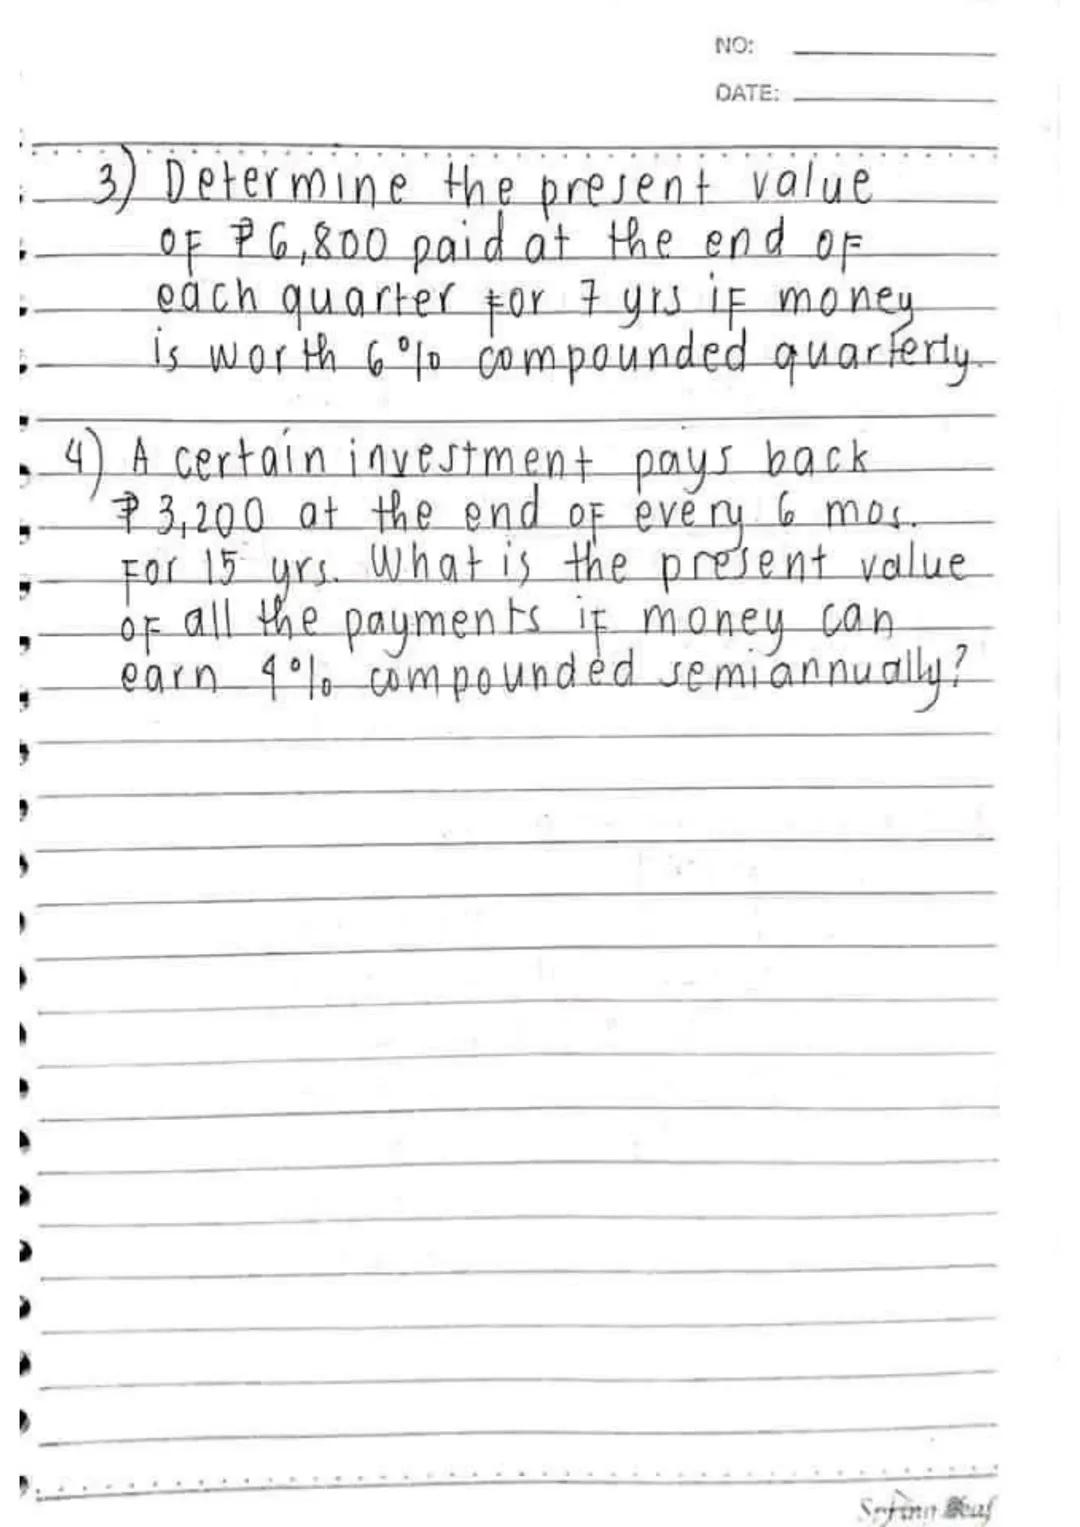 NO:
DATE:
3) Determine the present value
of ₱6,800 paid at the end of
each quarter for 7 yrs if money
is worth 6% compounded quarterly.
4) A certain investment pays back
₱3,200 at the end of every 6 mos.
for 15 yrs. What is the present value
of all the payments if money can
earn 4% compounded semiannually?